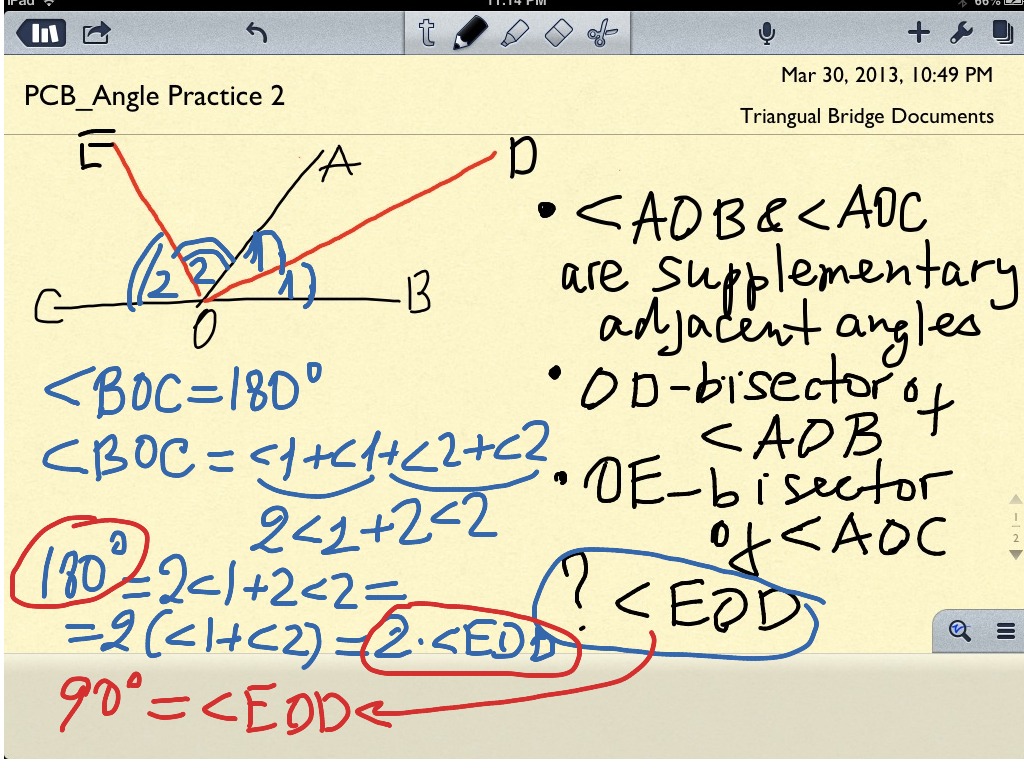 iPad
11:14 PM
66%
t
Mar 30, 2013, 10:49 PM
PCB_Angle Practice 2
Triangual Bridge Documents
E
A
D
C
2
2
1
1
B
O
<BOC=180°
<BOC=<1+<1+<2+<2
2<1+2<2
180°=2<1+2<2=
=2(<1+<2)=2·<EOD
90°=<EOD
• <AOB&<AOC
are supplementary
adjacent angles
• OD-bisector of
<AOB
• OE-bisector
of <AOC
? <EOD
1
2